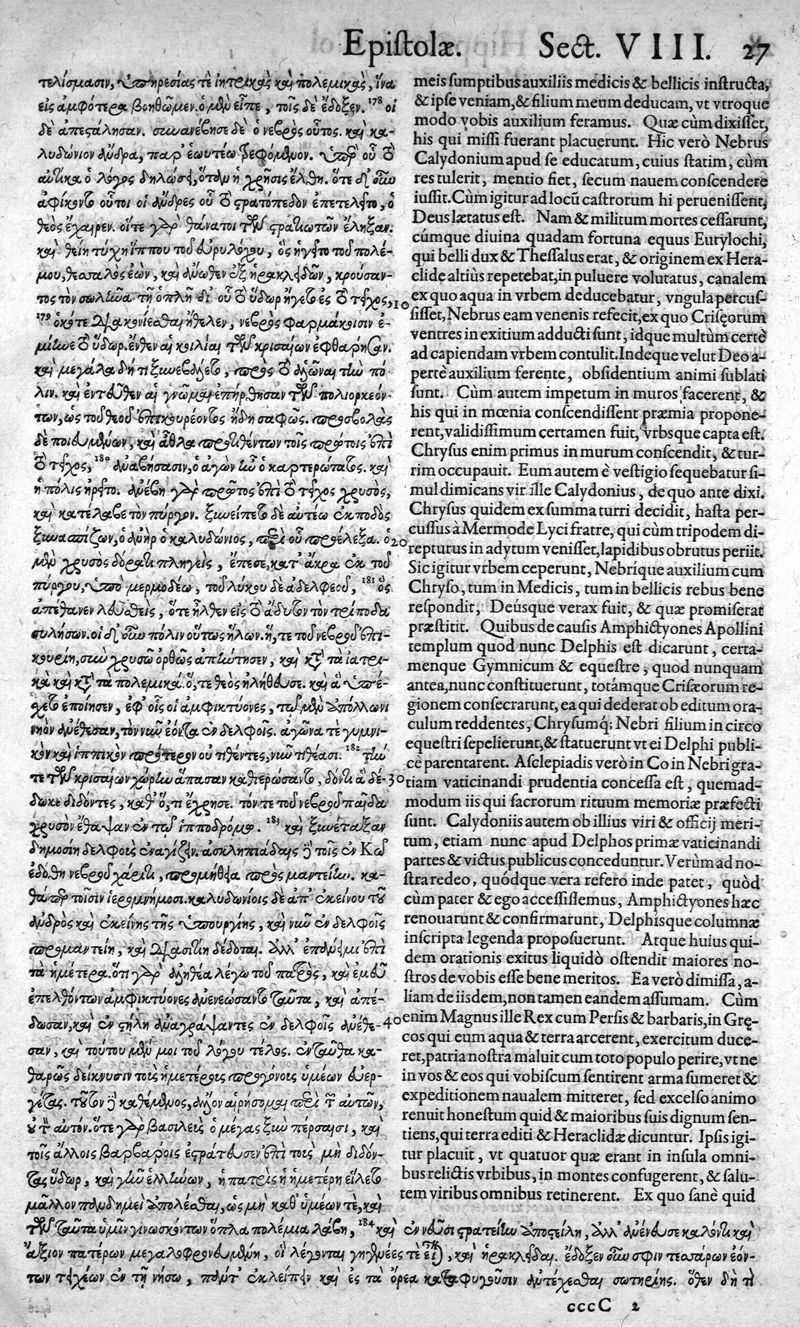 Epistolæ. Sect. VIII. 27
τελίσμασιν, ὑπηρεσίας τὲ ἰητρικὰς καὶ πολεμικὰς, ἵνα
εἰς ἀμφότερα βοηθῶμεν. ὁ μὲν εἶπε, τοῖς δὲ ἔδοξεν. 178 οἱ
δὲ ἀπεστάλησαν. συνανέβησε δὲ ὁ νεβρὸς οὗτος. καὶ κα-
λυδώνιον ἄνδρα, παρ' ἑωυτέῳ τρεφόμενον. ὑπὲρ οὗ τὸ
αὐτίκα ὁ λόγος δηλώσει, ὅταν ἡ χρῆσις ἔλθῃ. ὅτε δ' οὖν
ἀφίκοντο οὗτοι οἱ ἄνδρες οὗ τὸ στρατόπεδον ἐπετελεῖτο, ὁ
θεὸς ἔχαιρεν. οἵτε γὰρ θάνατοι τῶν στρατιωτῶν ἔληξαν.
καὶ θείῃ τύχῃ ἵππου τοῦ εὐρυλόχου, ὃς ἡγεῖτο τοῦ πολέ-
μου, θεσσαλὸς ἐὼν, καὶ ἄνωθεν ἐξ ἡρακλειδῶν, κρούσαν-
τος τὸν σωλῆνα τῇ ὁπλῇ δι' οὗ τὸ ὕδωρ ἤγετο ἐς τὸ τεῖχος, 10
179 ὁκότε κονίεσθαι ἤθελεν, νεβρὸς φαρμάκοισιν ἐ-
μίηνε τὸ ὕδωρ. ἔνθεν αἱ κοιλίαι τῶν κρισαίων ἐφθάρησαν.
καὶ μεγάλα δή τι ξυνεβάλετο, πρὸς τὸ ἁλῶναι τὴν πό-
λιν. καὶ ἐντεῦθεν αἱ γνῶμαι ἐπήρθησαν τῶν πολιορκεόν-
των, ὡς τοῦ θεοῦ ἐπικουρέοντος ἤδη σαφῶς. προσβολὰς
δὲ ποιευμένων, καὶ ἆθλα προτιθέντων τοῖς πρώτοις ἐπὶ
τὸ τεῖχος, 180 ἀναβήσασιν, ὁ ἀγὼν ἦν ὁ καρτερώτατος. καὶ
ἡ πόλις ᾑρεῖτο. ἀνέβη γὰρ πρῶτος ἐπὶ τὸ τεῖχος χρυσὸς,
καὶ κατέλαβε τὸν πύργον. ξυνείπετο δὲ αὐτέῳ ἐκ ποδὸς
ξυνασπίζων, ὁ ἀνὴρ ὁ καλυδώνιος, περὶ οὗ προέλεξα. ὁ 20
μὲν χρυσὸς δόρατι πληγεὶς, ἔπεσε, κατ' ἄκρα ἐκ τοῦ
πύργου, ὑπὸ μερμοδέω, τοῦ λύκου δὲ ἀδελφεοῦ, 181 ὃς
ἀπέθανεν λευσθεὶς, ὅτε ἦλθεν εἰς τὸ ἄδυτον τὸν τρίποδα
συλήσων. οἱ δ' οὖν πόλιν οὕτως ἥλων. ἥ, τε τοῦ νεβροῦ ἐπι-
κουρίη, σὺν χρυσῷ ὀρθῶς ἀπήντησεν, καὶ κατὰ τὰ ἰατρι-
κὰ καὶ κατὰ τὰ πολεμικά. ὅ, τε θεὸς ἠλήθευσε. καὶ ἃ ὑπέ-
σχετο ἐποίησεν, ἐφ' οἷς οἱ ἀμφικτύονες, τῷ μὲν ἀπόλλωνι
νηὸν ἀνέθεσαν, τὸν νῦν ἐόντα ἐν δελφοῖς. ἀγῶνα τε γυμνι-
κὸν καὶ ἱππικὸν πρότερον οὐ τιθέντες, νῦν τιθέασι. 182 τὴν
τε τῶν κρισαίων χώρην ἅπασαν καθιέρωσαντο, δόντι ἃ δέ- 30
δωκε διδόντες, καθ' ὅ, τι ἔχρησε. τόν τε τοῦ νεβροῦ παῖδα
χρυσὸν ἔθαψαν ἐν τῷ ἱπποδρόμῳ. 183 καὶ ξυνέταξαν
δημοσίῃ δελφοὺς ἐναγίζειν. ἀσκληπιάδαις δὲ τοῖς ἐν Κῷ
ἐδόθη νεβροῦ χάριτι, προμηθίη πρὸς μαντείην. κα-
θάπερ τοῖσιν ἱερομνήμοσι. καλυδωνίοις δὲ ἀπ' ἐκείνου τοῦ
ἀνδρὸς καὶ ἐκείνης τῆς ὑπουργίης, καὶ νῦν ἐν δελφοῖς
προμαντείη, καὶ δέδοται. ἀλλ' ἐπάνειμι ἐπὶ
τὰ ἡμέτερα. ὅτι γὰρ ἀληθέα λέγω τοῦ πατρὸς, καὶ ἐμεῦ
ἐπελθόντων ἀμφικτύονες ἀνενεώσαντο ταῦτα, καὶ ἀπέ-
δωσαν, καὶ ἐν στήλῃ ἀναγράψαντες ἐν δελφοῖς ἀνέθε- 40
σαν, καὶ τούτου μέν μοι τοῦ λόγου τέλος. ἐνταῦθα κα-
θαρῶς δείκνυσιν τοὺς ἡμετέρους προγόνους ὑμέων εὐερ-
γέτας. τοῦτον δὲ καθέμενος, ἄλλον αἱρήσομαι περὶ τῶν αὐτῶν,
οὐ τὸν αὐτόν. ὅτε γὰρ βασιλεὺς ὁ μέγας ξὺν πέρσαισι, καὶ
τοῖς ἄλλοις βαρβάροις ἐστράτευσεν ἐπὶ τοὺς μὴ διδόν-
τας ὕδωρ, καὶ γῆν ἑλλήνων, ἡ πατρὶς ἡ ἡμετέρη εἵλετο
μᾶλλον πανδημεὶ ἀπολέσθαι, ὡς μὴ καθ' ὑμέων τὲ, καὶ
meis sumptibus auxiliis medicis & bellicis instructa,
& ipse veniam, & filium meum deducam, vt vtroque
modo vobis auxilium feramus. Quæ cùm dixisset,
his qui missi fuerant placuerunt. Hic verò Nebrus
Calydonium apud se educatum, cuius statim, cùm
res tulerit, mentio fiet, secum nauem conscendere
iussit. Cùm igitur ad locū castrorum hi peruenissent,
Deus lætatus est. Nam & militum mortes cessarunt,
cúmque diuina quadam fortuna equus Eurylochi,
qui belli dux & Thessalus erat, & originem ex Hera-
clide altiùs repetebat, in puluere volutatus, canalem
ex quo aqua in vrbem deducebatur, vngula percus-
sisset, Nebrus eam venenis refecit, ex quo Crisęorum
ventres in exitium adducti sunt, idque multùm certè
ad capiendam vrbem contulit. Indeque velut Deo a-
pertè auxilium ferente, obsidentium animi sublati
sunt. Cùm autem impetum in muros facerent, &
his qui in mœnia conscendissent præmia propone-
rent, validissimum certamen fuit, vrbsque capta est.
Chrysus enim primus in murum conscendit, & tur-
rim occupauit. Eum autem è vestigio sequebatur si-
mul dimicans vir ille Calydonius, de quo ante dixi.
Chrysus quidem ex summa turri decidit, hasta per-
cussus à Mermode Lyci fratre, qui cùm tripodem di-
repturus in adytum venisset, lapidibus obrutus periit.
Sic igitur vrbem ceperunt, Nebrique auxilium cum
Chryso, tum in Medicis, tum in bellicis rebus bene
respondit, Deúsque verax fuit, & quæ promiserat
præstitit. Quibus de causis Amphictyones Apollini
templum quod nunc Delphis est dicarunt, certa-
menque Gymnicum & equestre, quod nunquam
antea, nunc constituerunt, totámque Crisæorum re-
gionem consecrarunt, ea qui dederat ob editum ora-
culum reddentes, Chrysumq; Nebri filium in circo
equestri sepelierunt, & statuerunt vt ei Delphi publi-
cè parentarent. Asclepiadis verò in Co in Nebri gra-
tiam vaticinandi prudentia concessa est, quemad-
modum iis qui sacrorum rituum memoriæ præfecti
sunt. Calydoniis autem ob illius viri & officij meri-
tum, etiam nunc apud Delphos primæ vaticinandi
partes & victus publicus conceduntur. Verùm ad no-
stra redeo, quódque vera refero inde patet, quòd
cùm pater & ego accessissemus, Amphictyones hæc
renouarunt & confirmarunt, Delphisque columnæ
inscripta legenda proposuerunt. Atque huius qui-
dem orationis exitus liquidò ostendit maiores no-
stros de vobis esse bene meritos. Ea verò dimissa, a-
liam de iisdem, non tamen eandem assumam. Cùm
enim Magnus ille Rex cum Persis & barbaris, in Grę-
cos qui eum aqua & terra arcerent, exercitum duce-
ret, patria nostra maluit cum toto populo perire, vt ne
in vos & eos qui vobiscum sentirent arma sumeret &
expeditionem naualem mitteret, sed excelso animo
renuit honestum quid & maioribus suis dignum sen-
tiens, qui terra editi & Heraclidæ dicuntur. Ipsis igi-
tur placuit, vt quatuor quæ erant in insula omni-
bus relictis vrbibus, in montes confugerent, & salu-
tem viribus omnibus retinerent. Ex quo sanè quid
τῶν ταῦτα ὑμῖν γινωσκόντων ὅπλα πολέμια λάβῃ, 184 καὶ στρατείην ἀποστεῖλῃ, ἀλλ' ἀνένευσε καὶ
ἄξιον πατέρων μεγαλοφρονευμένη, οἳ λέγονται γηγενέες τὲ, καὶ ἡρακλεῖδαι. ἔδοξεν οὖν σφιν τεσσάρων ἐόν-
των τειχέων ἐν τῇ νήσῳ, πάντ' ἐκλείπειν καὶ ἐς τὰ ὄρεα καταφυγοῦσιν ἀντέχεσθαι σωτηρίης. ὅθεν δὴ τί
cccC 2